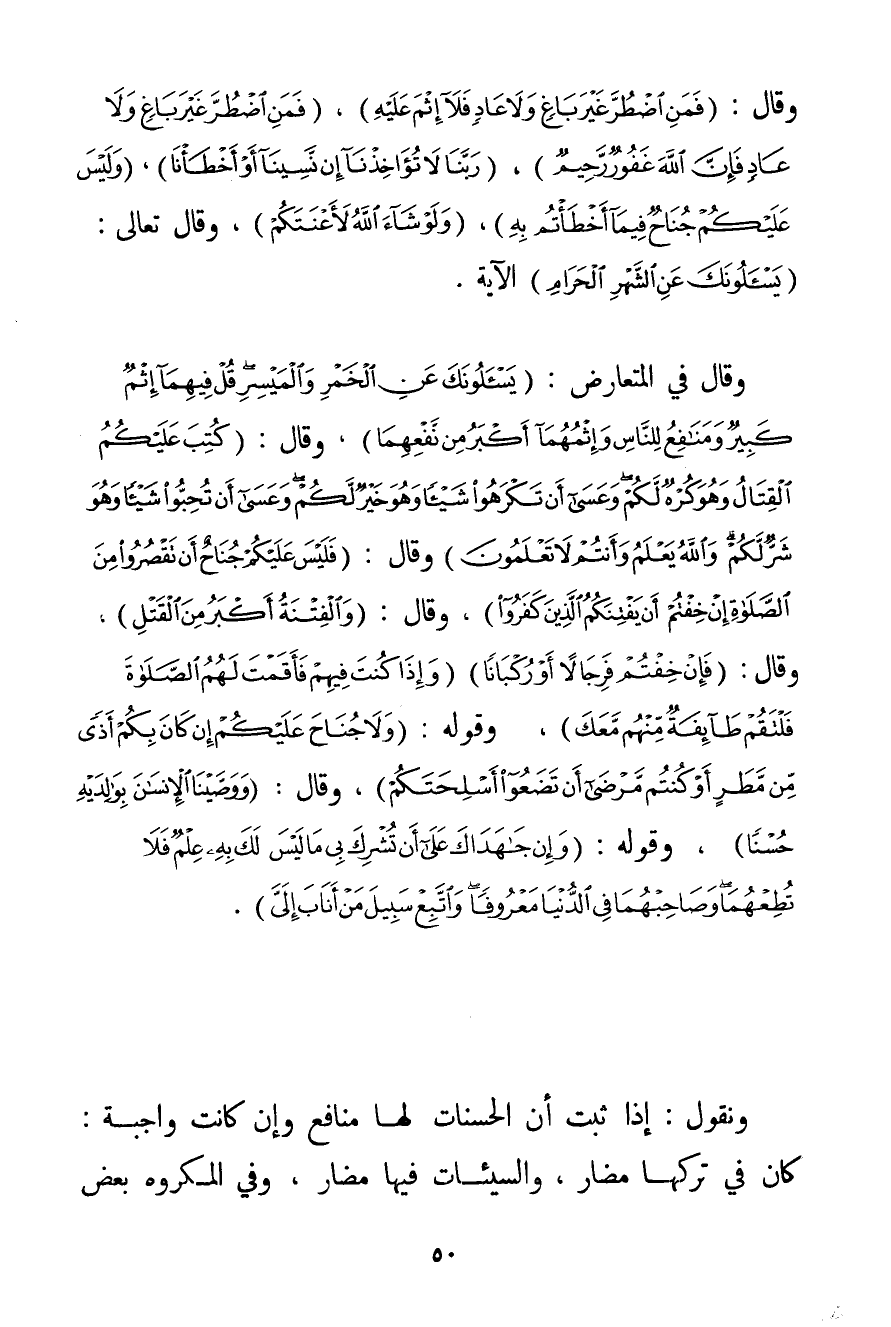 وقال : ( فَمَنِ ٱضْطُرَّ غَيْرَ بَاغٍ وَلَا عَادٍ فَلَآ إِثْمَ عَلَيْهِ ) ، ( فَمَنِ ٱضْطُرَّ غَيْرَ بَاغٍ وَلَا
عَادٍ فَإِنَّ ٱللَّهَ غَفُورٌ رَّحِيمٌ ) ، ( رَبَّنَا لَا تُؤَاخِذْنَآ إِن نَّسِينَآ أَوْ أَخْطَأْنَا ) ، ( وَلَيْسَ
عَلَيْكُمْ جُنَاحٌ فِيمَآ أَخْطَأْتُم بِهِ ) ، ( وَلَوْ شَآءَ ٱللَّهُ لَأَعْنَتَكُمْ ) ، وقال تعالى :
( يَسْـَٔلُونَكَ عَنِ ٱلشَّهْرِ ٱلْحَرَامِ ) الآية .
وقال في المتعارض : ( يَسْـَٔلُونَكَ عَنِ ٱلْخَمْرِ وَٱلْمَيْسِرِ ۖ قُلْ فِيهِمَآ إِثْمٌ
كَبِيرٌ وَمَنَٰفِعُ لِلنَّاسِ وَإِثْمُهُمَآ أَكْبَرُ مِن نَّفْعِهِمَا ) ، وقال : ( كُتِبَ عَلَيْكُمُ
ٱلْقِتَالُ وَهُوَ كُرْهٌ لَّكُمْ ۖ وَعَسَىٰٓ أَن تَكْرَهُوا۟ شَيْـًٔا وَهُوَ خَيْرٌ لَّكُمْ ۖ وَعَسَىٰٓ أَن تُحِبُّوا۟ شَيْـًٔا وَهُوَ
شَرٌّ لَّكُمْ ۗ وَٱللَّهُ يَعْلَمُ وَأَنتُمْ لَا تَعْلَمُونَ ) وقال : ( فَلَيْسَ عَلَيْكُمْ جُنَاحٌ أَن تَقْصُرُوا۟ مِنَ
ٱلصَّلَوٰةِ إِنْ خِفْتُمْ أَن يَفْتِنَكُمُ ٱلَّذِينَ كَفَرُوٓا۟ ) ، وقال : ( وَٱلْفِتْنَةُ أَكْبَرُ مِنَ ٱلْقَتْلِ ) ،
وقال : ( فَإِنْ خِفْتُمْ فَرِجَالًا أَوْ رُكْبَانًا ) ( وَإِذَا كُنتَ فِيهِمْ فَأَقَمْتَ لَهُمُ ٱلصَّلَوٰةَ
فَلْتَقُمْ طَآئِفَةٌ مِّنْهُم مَّعَكَ ) ، وقوله : ( وَلَا جُنَاحَ عَلَيْكُمْ إِن كَانَ بِكُمْ أَذًى
مِّن مَّطَرٍ أَوْ كُنتُم مَّرْضَىٰٓ أَن تَضَعُوٓا۟ أَسْلِحَتَكُمْ ) ، وقال : ( وَوَصَّيْنَا ٱلْإِنسَٰنَ بِوَٰلِدَيْهِ
حُسْنًا ) ، وقوله : ( وَإِن جَٰهَدَاكَ عَلَىٰٓ أَن تُشْرِكَ بِى مَا لَيْسَ لَكَ بِهِۦ عِلْمٌ فَلَا
تُطِعْهُمَا ۖ وَصَاحِبْهُمَا فِى ٱلدُّنْيَا مَعْرُوفًا ۖ وَٱتَّبِعْ سَبِيلَ مَنْ أَنَابَ إِلَىَّ ) .
ونقول : إذا ثبت أن الحسنات لها منافع وإن كانت واجبة :
كان في تركها مضار ، والسيئات فيها مضار ، وفي المكروه بعض
٥٠